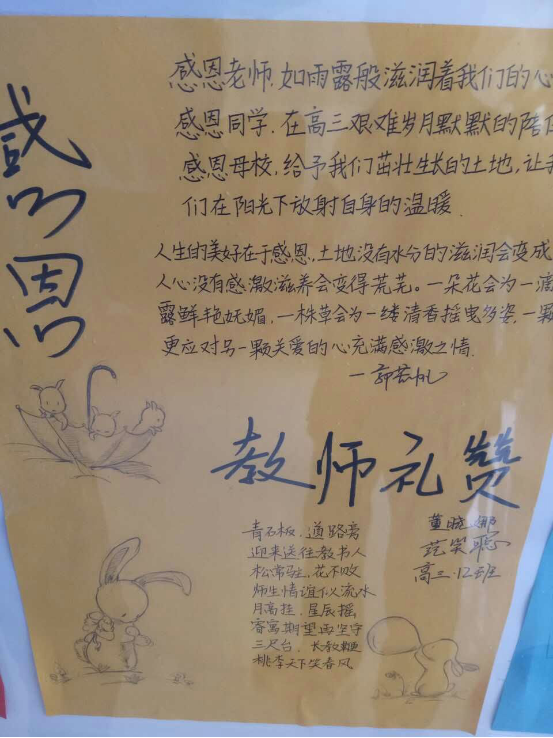 感恩
感恩老师,如雨露般滋润着我们的心
感恩同学,在高三艰难岁月默默的陪
感恩母校,给予我们茁壮生长的土地,让
们在阳光下放射自身的温暖
人生的美好在于感恩,土地没有水分的滋润会变成
人心没有感激滋养会变得荒芜。一朵花会为一滴
露鲜艳妩媚,一株草会为一缕清香摇曳多姿,一颗
更应对另一颗关爱的心充满感激之情.
教师礼赞
青石板,道路旁
迎来送往教书人
松常驻,花不败
师生情谊似流水
月高挂,星辰摇
寄寓期望
三尺台,长教鞭
桃李天下笑春风
董晓娜
范笑聪
高三·12班